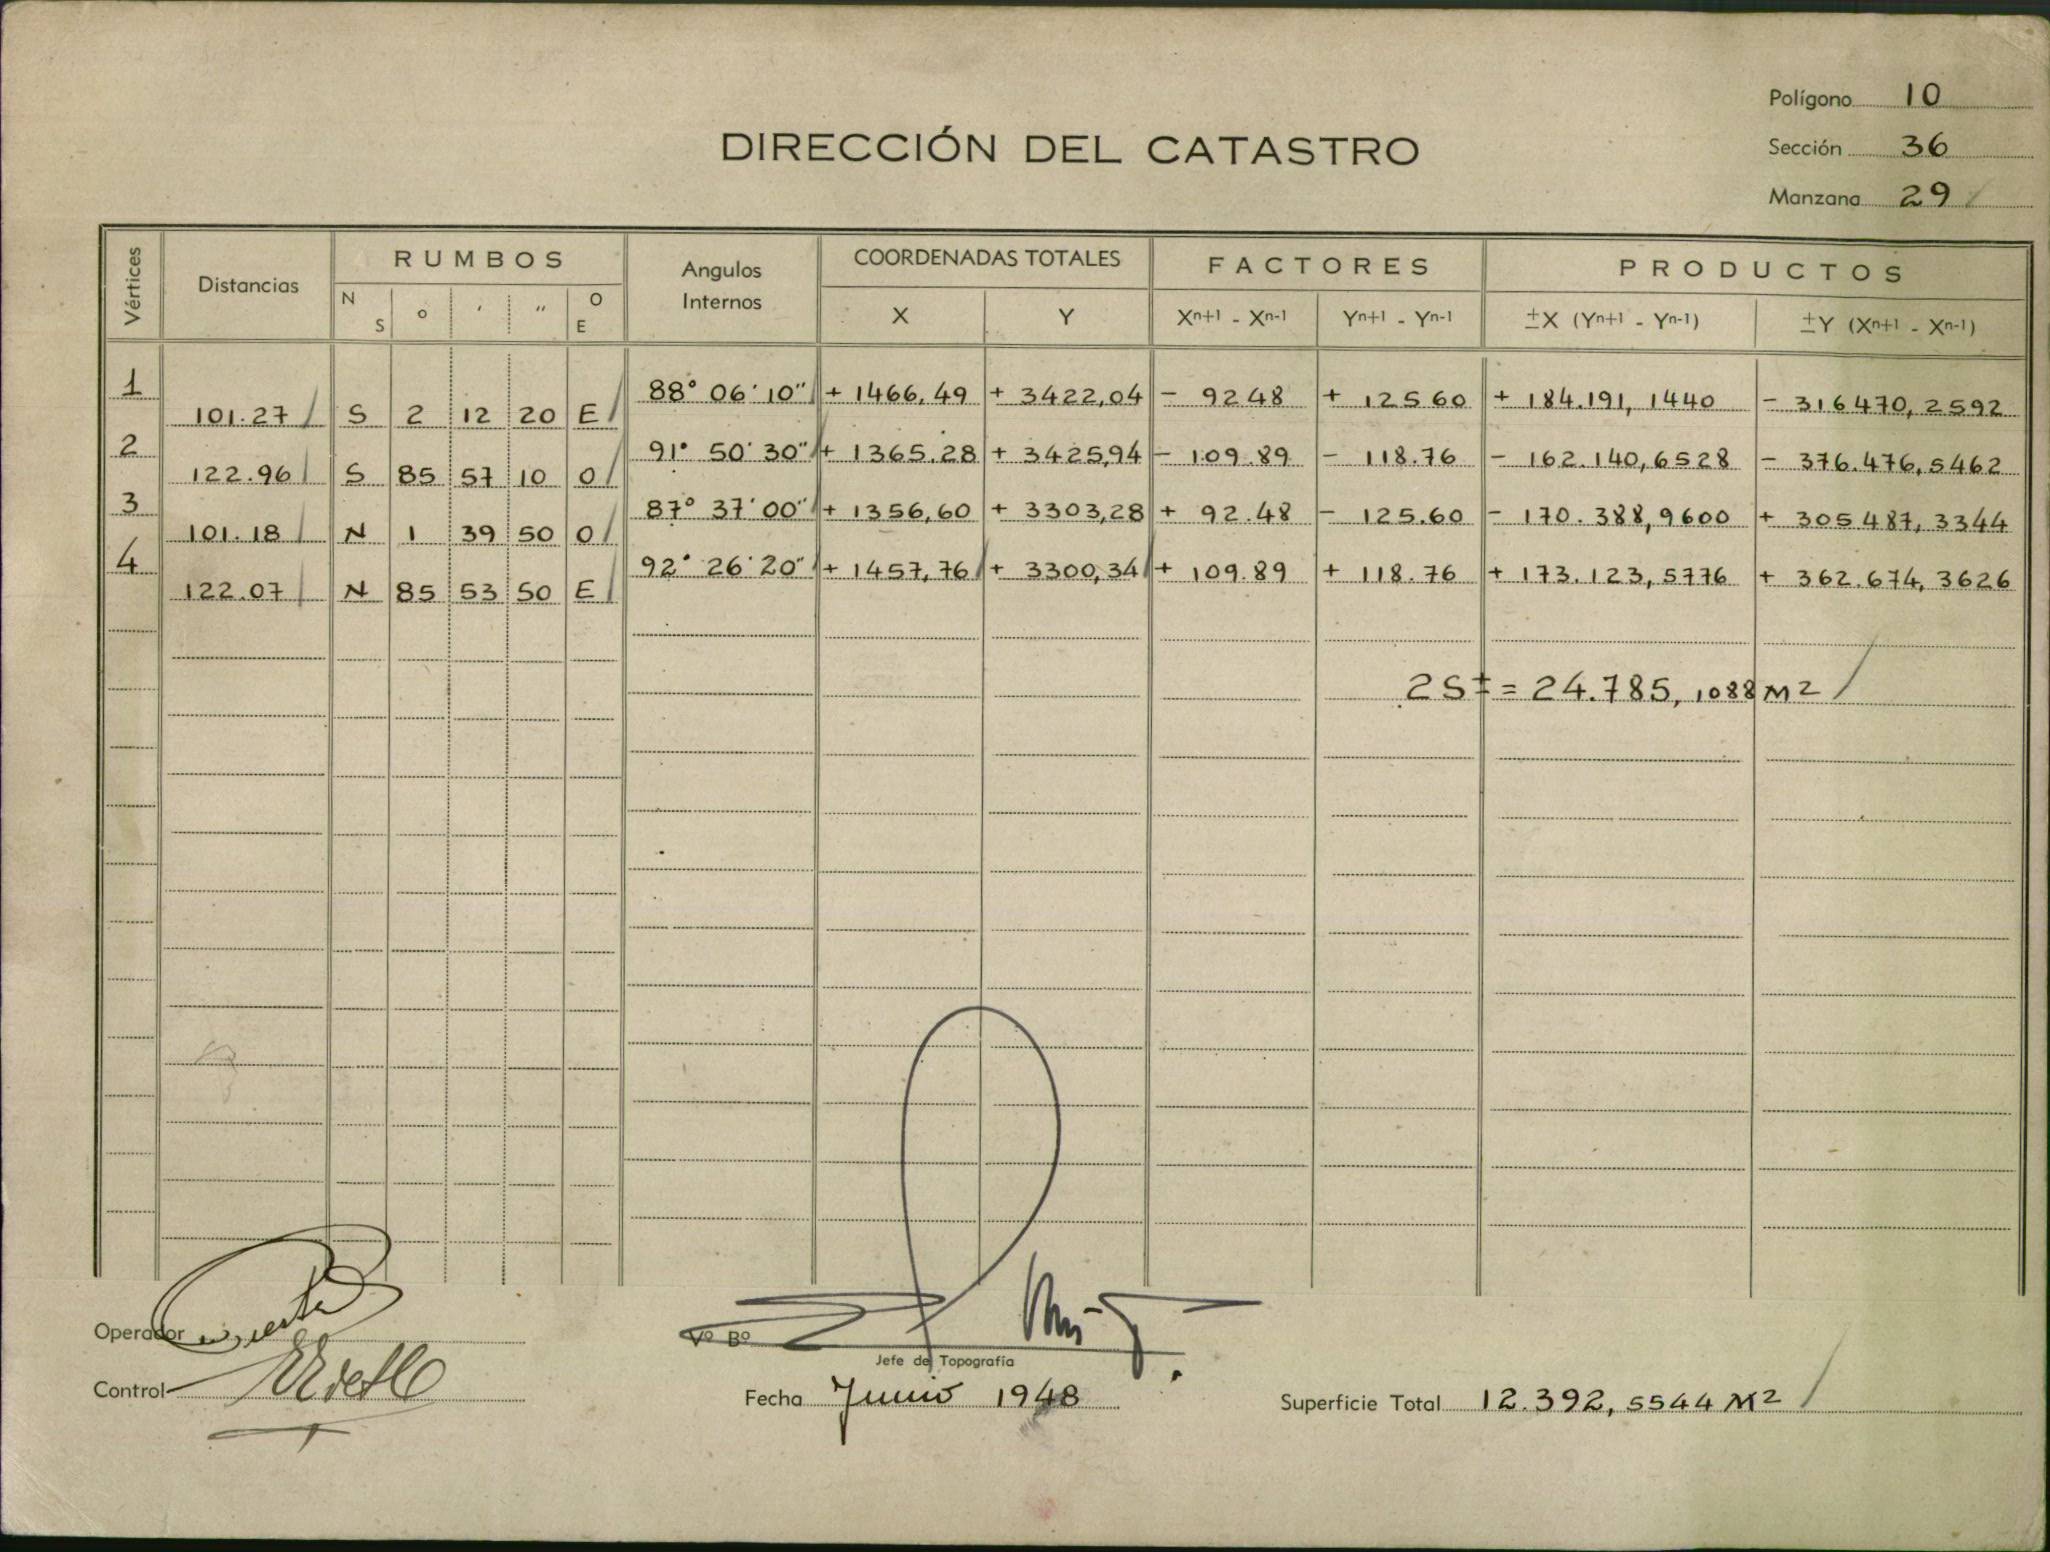 Polígono 10
DIRECCIÓN DEL CATASTRO
Sección 36
Manzana 29
Vértices Distancias RUMBOS Angulos Internos COORDENADAS TOTALES FACTORES PRODUCTOS
N S o ' '' O E X Y Xn+1 - Xn-1 Yn+1 - Yn-1 ±X (Yn+1 - Yn-1) ±Y (Xn+1 - Xn-1)
1 88° 06' 10" + 1466,49 + 3422,04 - 92 48 + 125 60 + 184.191, 1440 - 316 470, 2592
101.27 S 2 12 20 E
2 91° 50' 30" + 1365.28 + 3425,94 - 109.89 - 118.76 - 162.140,6528 - 376.476,5462
122.96 S 85 57 10 O
3 87° 37' 00" + 1356,60 + 3303,28 + 92.48 - 125.60 - 170.388,9600 + 305 487, 3344
101.18 N 1 39 50 O
4 92° 26' 20" + 1457,76 + 3300,34 + 109.89 + 118.76 + 173.123,5776 + 362.674, 3626
122.07 N 85 53 50 E
2S± = 24.785, 1088 M2
Operador
Vº Bº
Jefe de Topografía
Control
Fecha Junio 1948
Superficie Total 12.392, 5544 M2